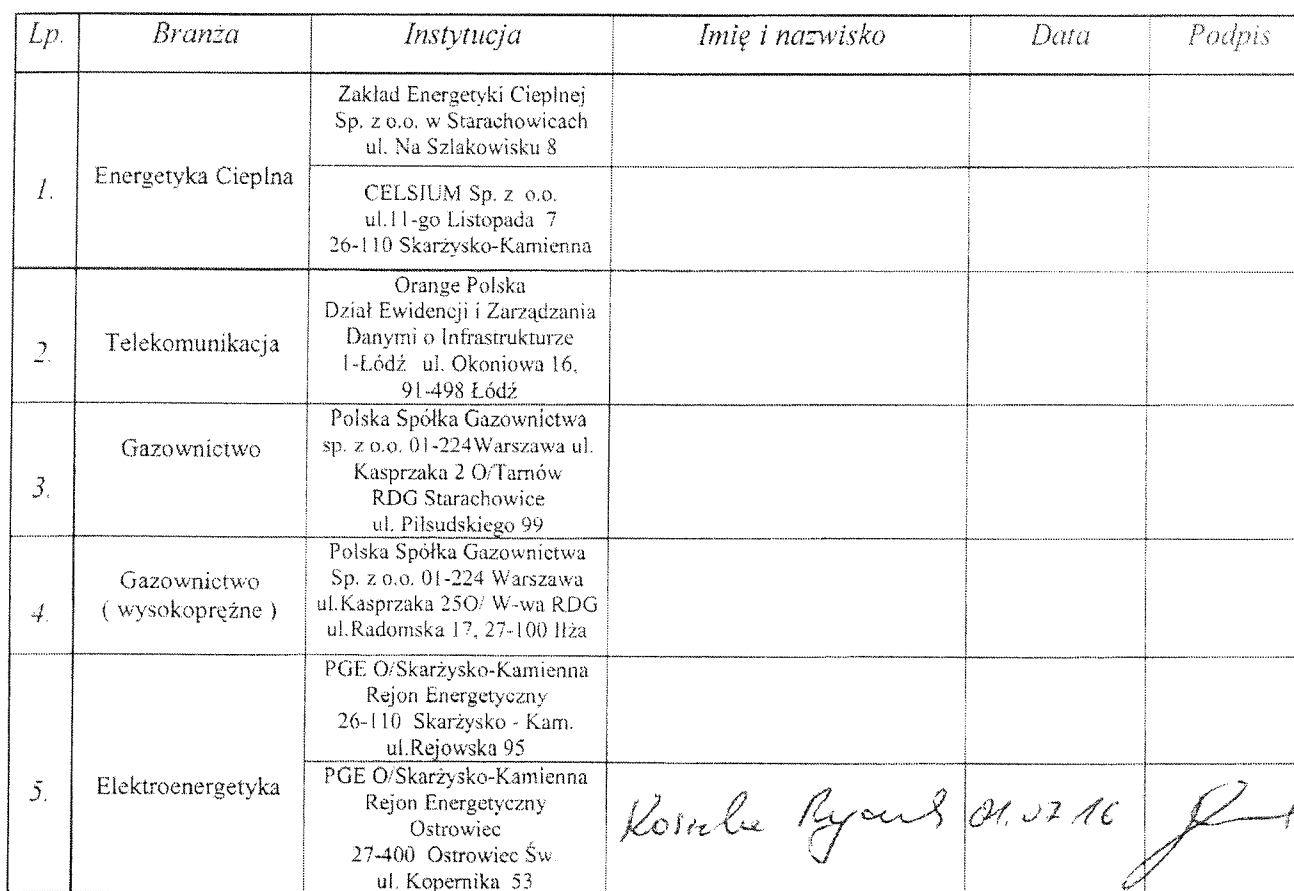 Lp. Branża Instytucja Imię i nazwisko Data Podpis
Zakład Energetyki Cieplnej
Sp. z o.o. w Starachowicach
ul. Na Szlakowisku 8
1. Energetyka Cieplna
CELSIUM Sp. z o.o.
ul.11-go Listopada 7
26-110 Skarżysko-Kamienna
2. Telekomunikacja
Orange Polska
Dział Ewidencji i Zarządzania
Danymi o Infrastrukturze
1-Łódź ul. Okoniowa 16,
91-498 Łódź
3. Gazownictwo
Polska Spółka Gazownictwa
sp. z o.o. 01-224Warszawa ul.
Kasprzaka 2 O/Tarnów
RDG Starachowice
ul. Piłsudskiego 99
4. Gazownictwo
( wysokoprężne )
Polska Spółka Gazownictwa
Sp. z o.o. 01-224 Warszawa
ul.Kasprzaka 25O/ W-wa RDG
ul.Radomska 17, 27-100 Iłża
5. Elektroenergetyka
PGE O/Skarżysko-Kamienna
Rejon Energetyczny
26-110 Skarżysko - Kam.
ul.Rejowska 95
PGE O/Skarżysko-Kamienna
Rejon Energetyczny
Ostrowiec
27-400 Ostrowiec Św.
ul. Kopernika 53
01.07.16